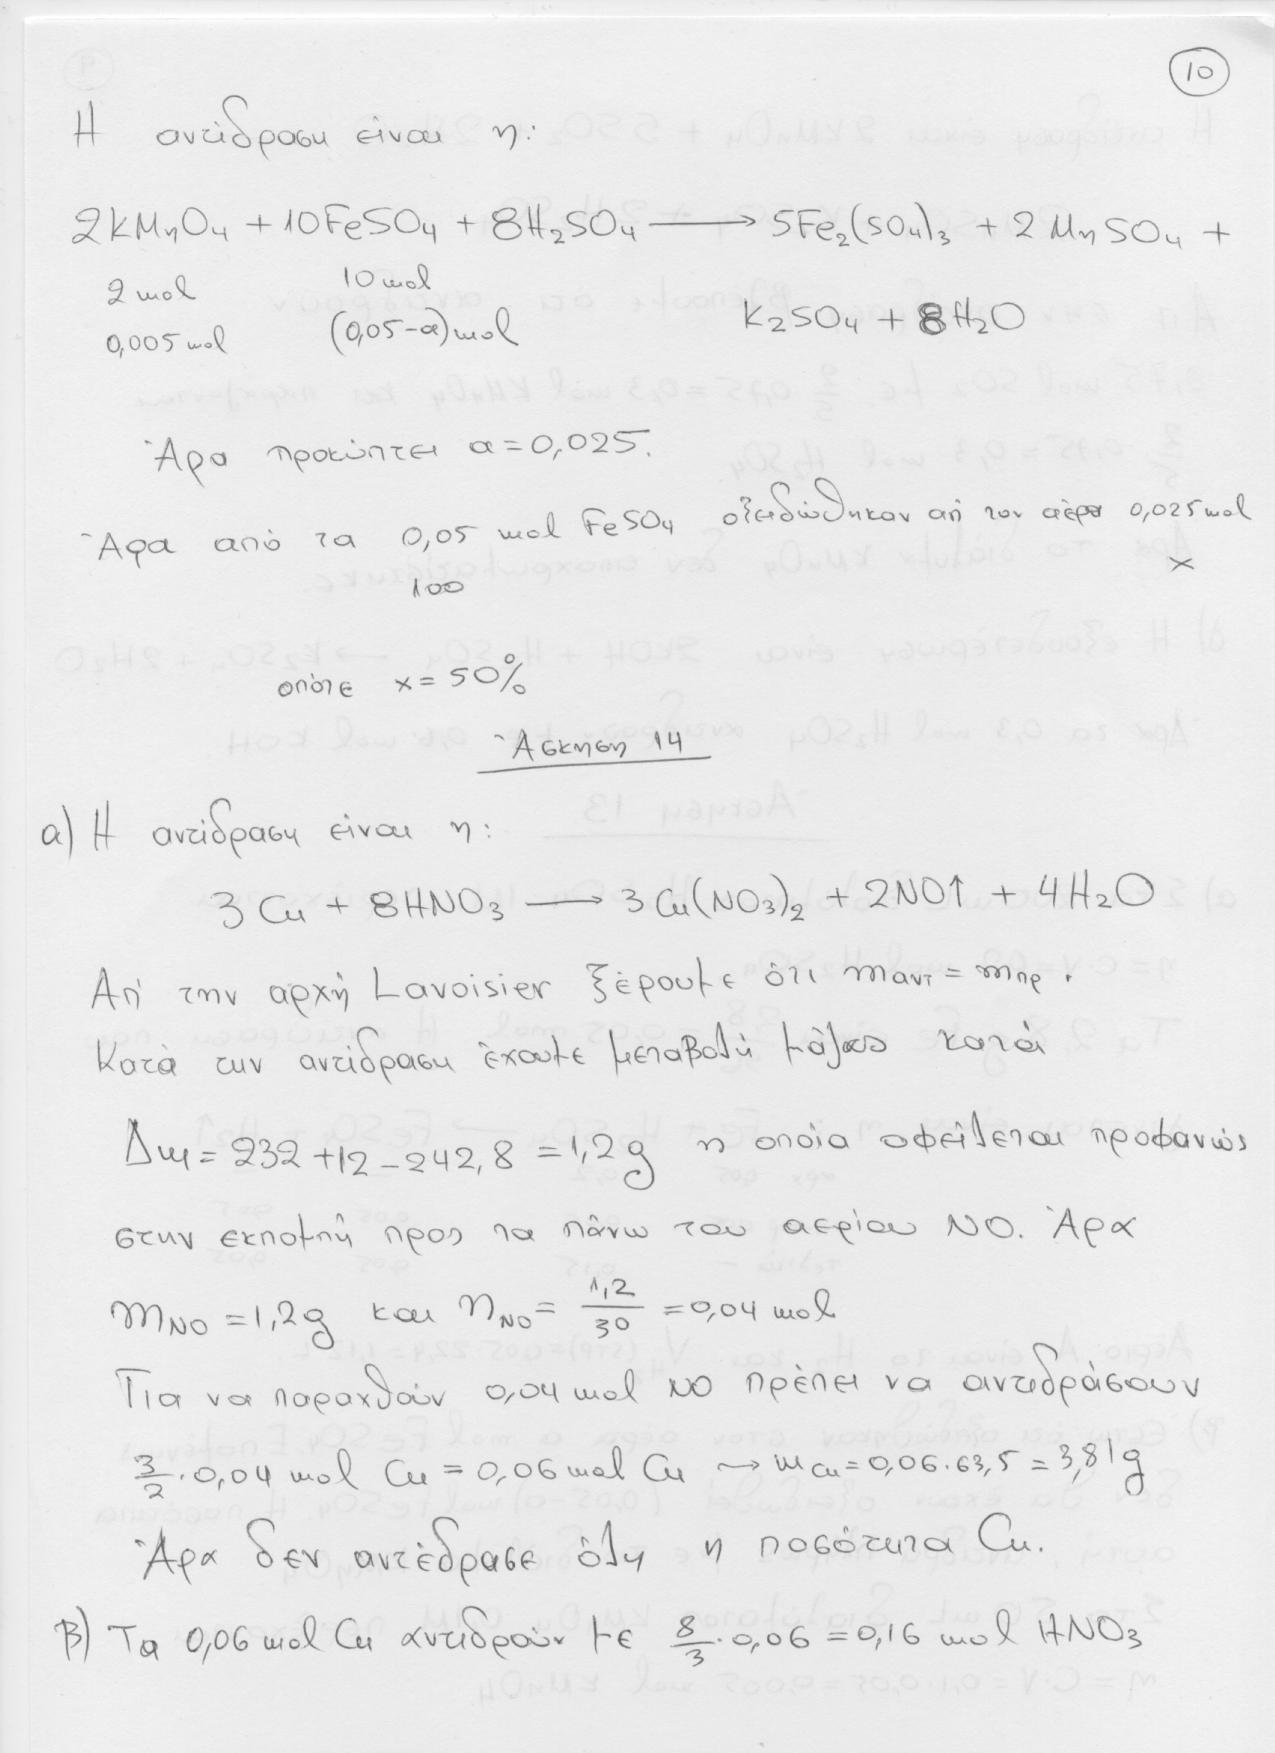 10
Η αντίδραση είναι η:
2KMnO₄ + 10FeSO₄ + 8H₂SO₄ ⟶ 5Fe₂(SO₄)₃ + 2MnSO₄ +
2 mol 10 mol
K₂SO₄ + 8H₂O
0,005 mol (0,05-α) mol
Άρα προκύπτει α = 0,025.
Άρα από τα 0,05 mol FeSO₄ οξειδώθηκαν απ' τον αέρα 0,025 mol
100 x
οπότε x = 50%
Άσκηση 14
α) Η αντίδραση είναι η:
3Cu + 8HNO₃ ⟶ 3Cu(NO₃)₂ + 2NO↑ + 4H₂O
Απ' την αρχή Lavoisier ξέρουμε ότι mαντ = mπρ.
Κατά την αντίδραση έχουμε μεταβολή μάζας κατά
Δm = 232 + 12 - 242,8 = 1,2g η οποία οφείλεται προφανώς
στην εκπομπή προς τα πάνω του αερίου NO. Άρα
m_NO = 1,2g και n_NO = 1,2/30 = 0,04 mol
Για να παραχθούν 0,04 mol NO πρέπει να αντιδράσουν
3/2 · 0,04 mol Cu = 0,06 mol Cu → m_Cu = 0,06 · 63,5 = 3,81g
Άρα δεν αντέδρασε όλη η ποσότητα Cu.
β) Τα 0,06 mol Cu αντιδρούν με 8/3 · 0,06 = 0,16 mol HNO₃